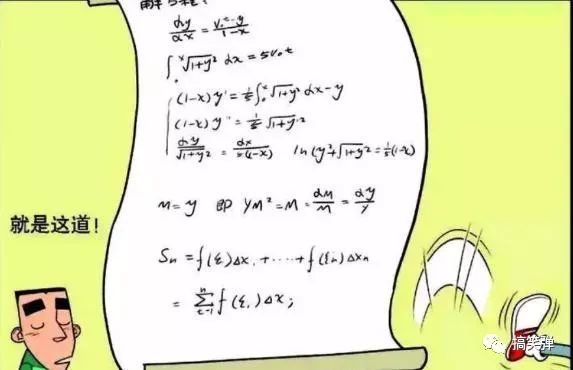 解方程:
dy/dx = (v₀t-y)/(1-x)
∫₀ˣ √(1+y²) dx = 5v₀t
(1-x)y' = 1/5 ∫₀ˣ √(1+y²) dx - y
(1-x)y'' = 1/5 √(1+y'²)
dy/√(1+y²) = dx/5(1-x) ln(y²+√(1+y²) = 1/5(1-x)
M=y 即 YM²=M= dM/M = dy/Y
就是这道!
Sn = f(ξ)Δx₁+·····+f(ξn)Δxn
= Σ f(ξ₁)Δx;
搞笑弹